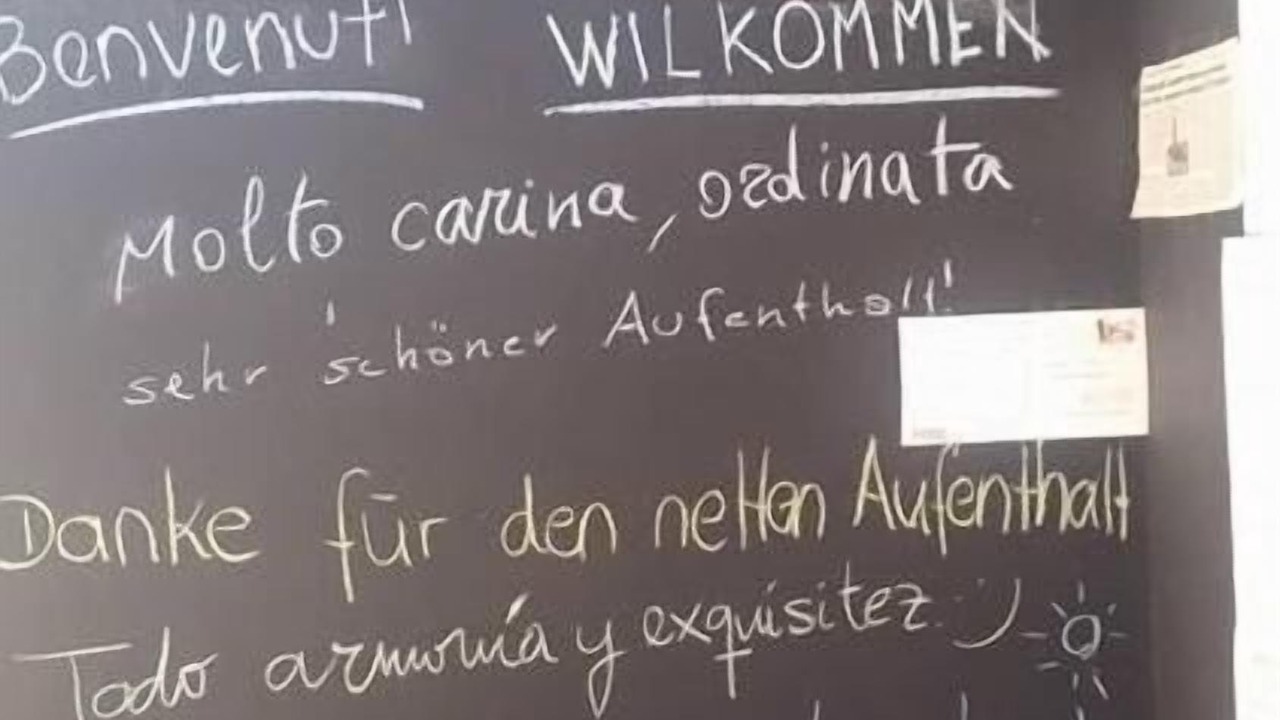 Benvenuti WILKOMMEN
Molto carina, ordinata
sehr schöner Aufenthalt!
Danke für den netten Aufenthalt
Todo armonía y exquisitez :)